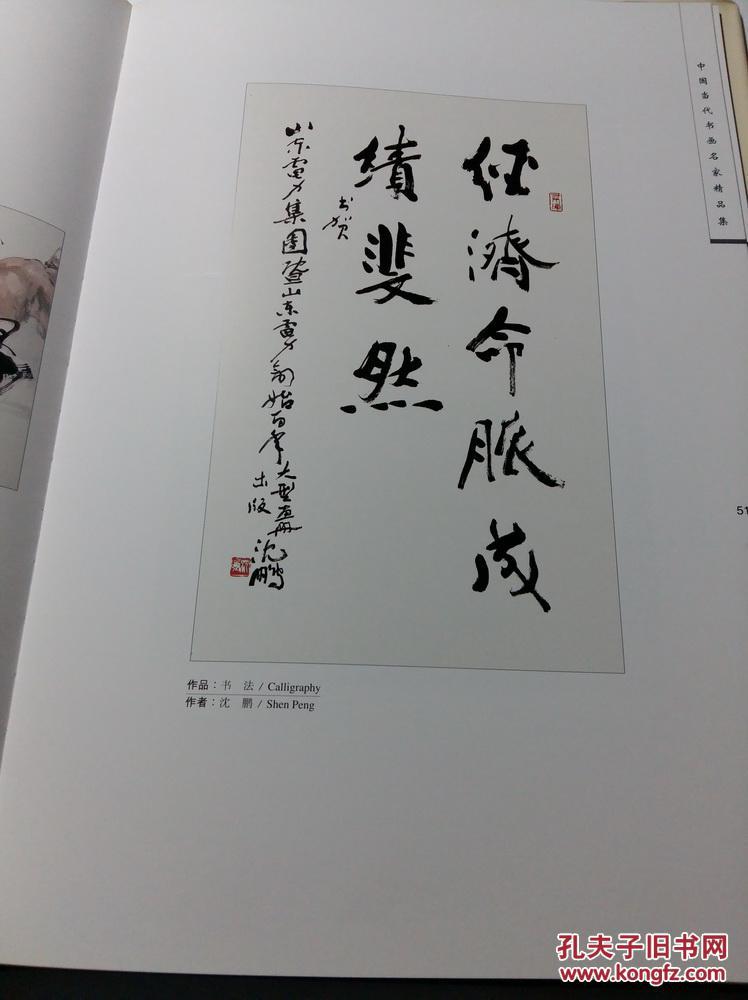 中国当代书画名家精品集
经济命脈成
績斐然
书贺
山东電力集團暨山东電力創始百年大型画册
出版
沈鹏
51
作品：书 法 / Calligraphy
作者：沈 鹏 / Shen Peng
孔夫子旧书网
www.kongfz.com